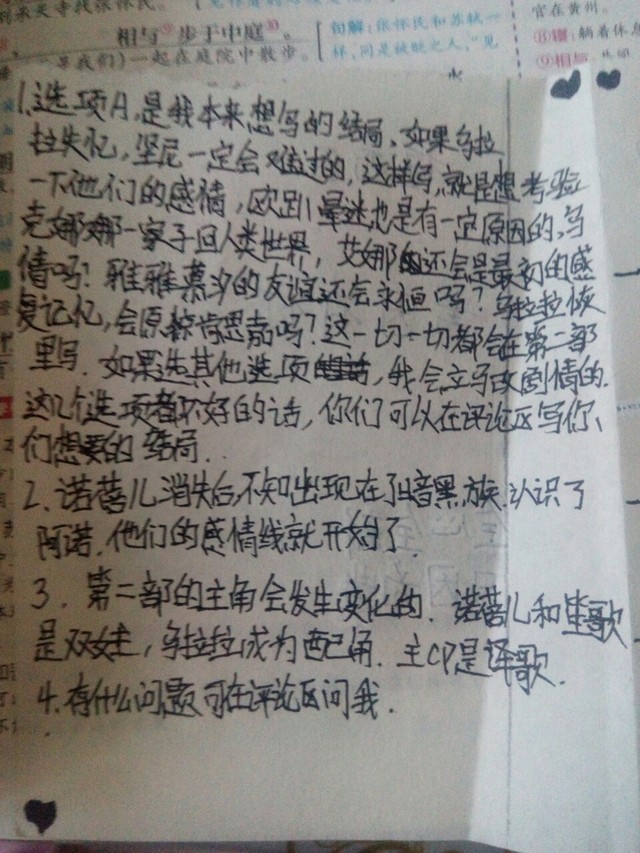 到承天寺寻张怀民。
相与⑨步于中庭⑩。
（是我们）一起在庭院中散步。
句解：张怀民和苏轼一
样，同是被贬之人，“见
官在黄州。
⑧寝：躺着休息
⑨相与
1、选项A，是我本来想写的结局、如果乌拉
拉失忆，坚尼一定会难过的，这样写，就是想考验
一下他们的感情，欧趴晕迷也是有一定原因的，乌
克娜娜一家子回人类世界，艾娜还会是最初的感
情吗？雅雅慕汐的友谊还会永恒吗？乌拉拉恢
复记忆，会原谅肯思嘉吗？这一切一切都会在第二部
里写．如果选其他选项，我会立马改剧情的.
这几个选项都不好的话，你们可以在评论区写你、
们想要的结局．.
2、诺蓓儿消失后，不知出现在了暗黑族、认识了
阿诺．他们的感情线就开始了．
3．第二部的主角会发生变化的．诺蓓儿和笙歌
是双女主，乌拉拉成为配角．主CP是译歌．
4、有什么问题可在评论区问我．